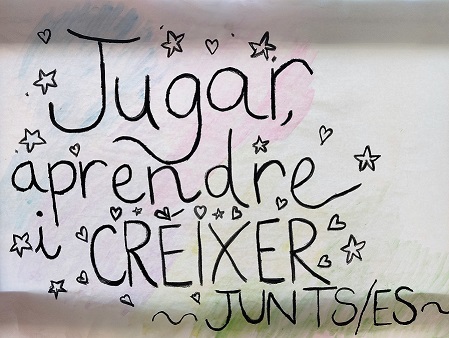 Jugar,
aprendre
i CRÉIXER
~ JUNTS/ES ~